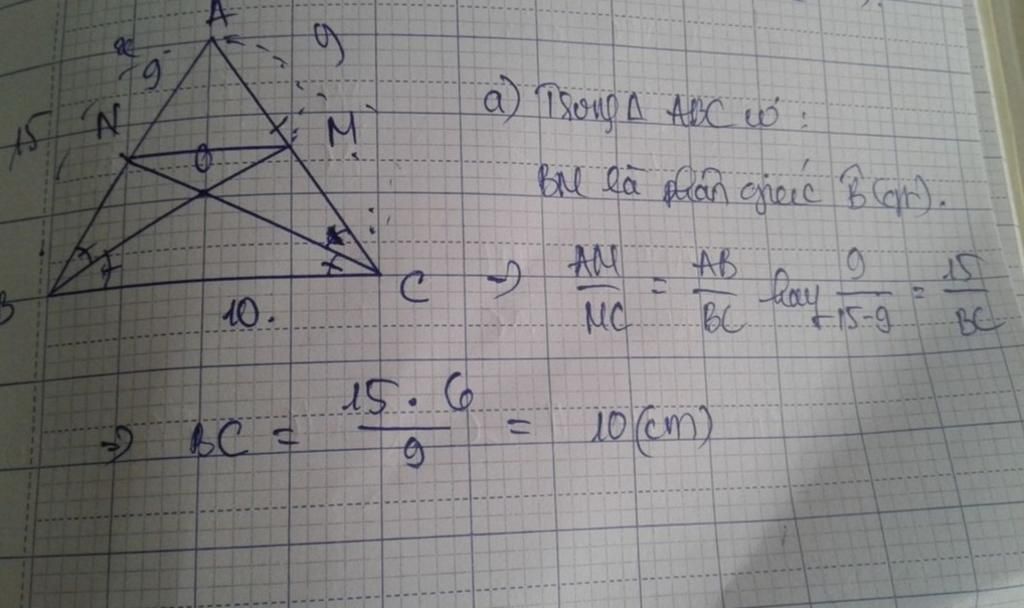 A
9
9
15
N
M
O
B
C
10.
a) Trong Δ ABC có :
BM là phân giác B̂ (gt).
⇒ AM/MC = AB/BC hay 9/15-9 = 15/BC
⇒ BC = 15 . 6/9 = 10 (cm)